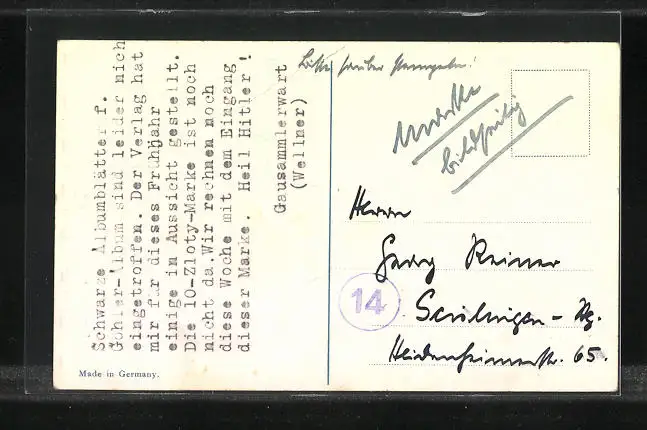 Schwarze Albumblätter f.
Gohler-Album sind leider nich
eingetroffen. Der Verlag hat
mir für dieses Frühjahr
einige in Aussicht gestellt.
Die 10-Zloty-Marke ist noch
nicht da. Wir rechnen noch
diese Woche mit dem Eingang
dieser Marke. Heil Hitler!
Gausammlerwart
(Wellner)
Made in Germany.
Bitte sauber stempeln!
Marke
bildseitig
Herrn
Georg Reiner
14
Heidenheimerstr. 65.